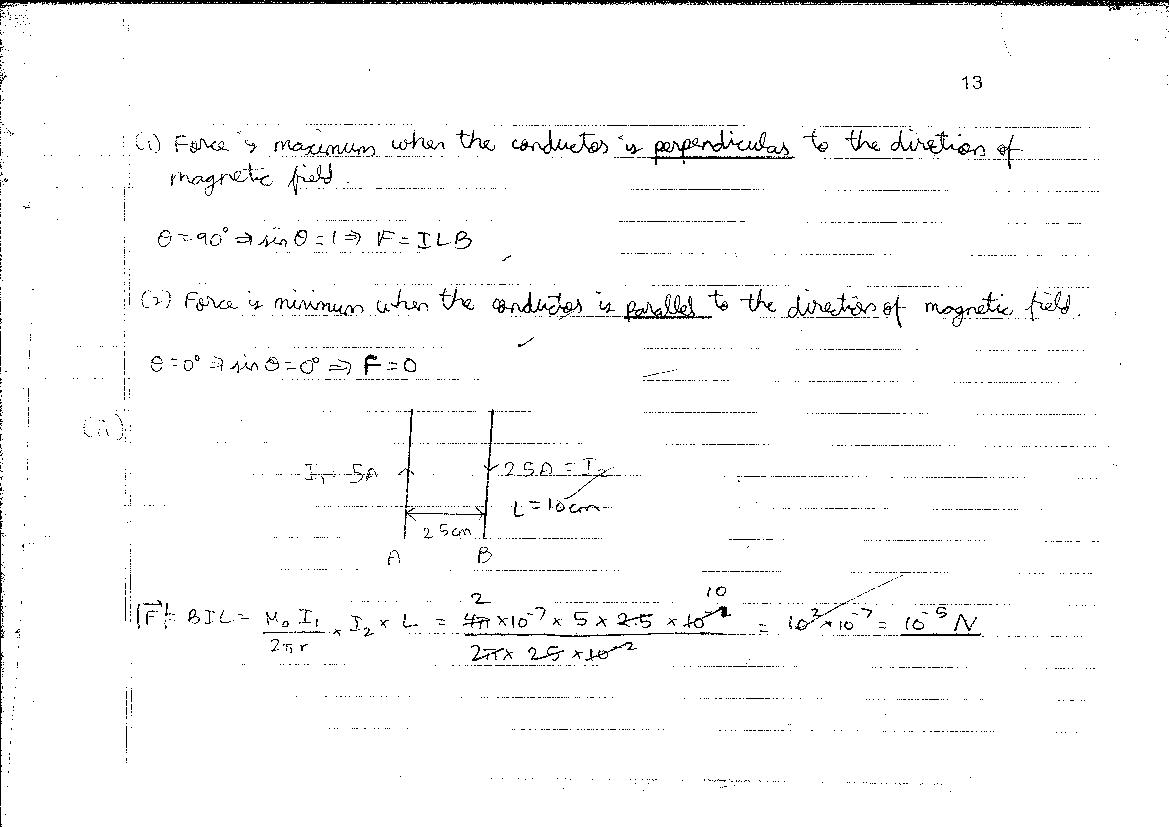 13
(1) Force is maximum when the conductor is perpendicular to the diretion of
magnetic field.
θ = 90° ⇒ sin θ = 1 ⇒ F = ILB
(2) Force is minimum when the conductor is parallel to the direction of magnetic field.
θ = 0° ⇒ sin θ = 0° ⇒ F = 0
(ii)
I₁ = 5A 25A = I₂
L = 10cm
25cm
A B
|F⃗| = BIL = μ₀ I₁ / 2πr × I₂ × L = 4π × 10⁻⁷ × 5 × 25 × 10⁻¹ / 2π × 25 × 10⁻² = 10² × 10⁻⁷ = 10⁻⁵ N
2 10